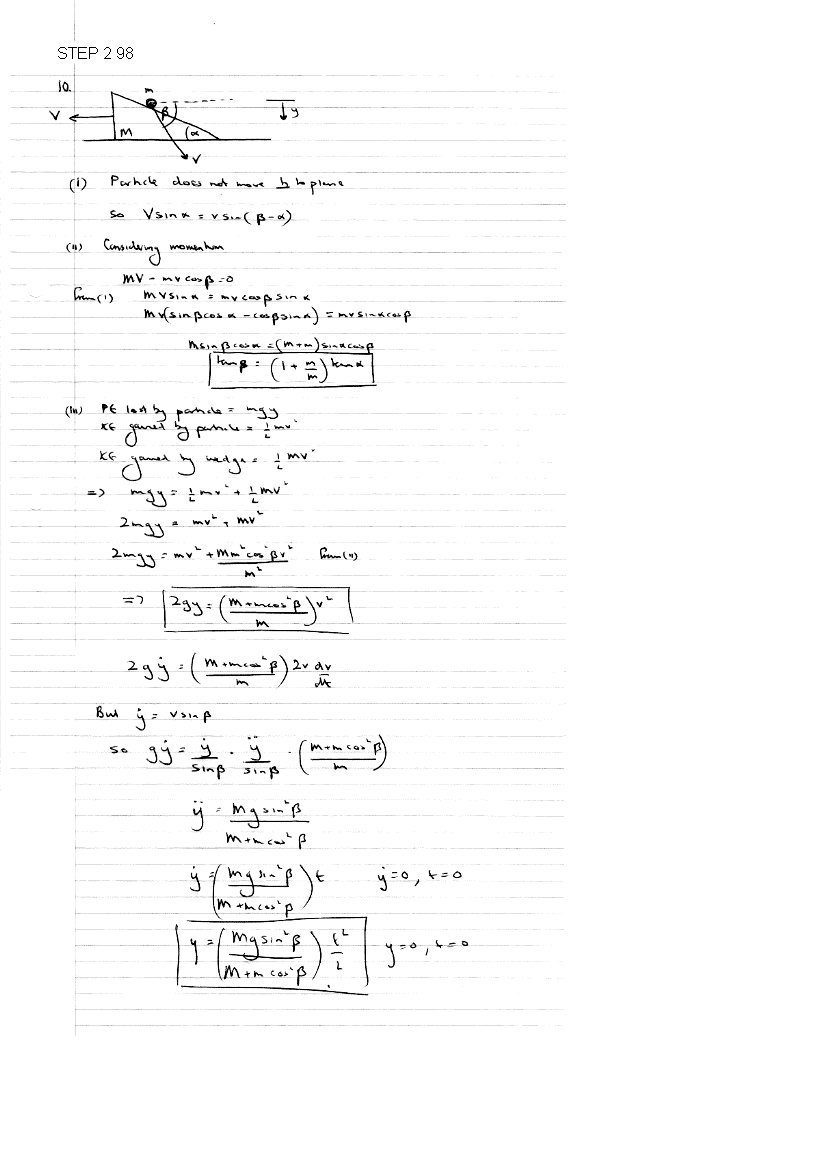 STEP 2 98
10.
m
β
y
V
M
α
v
(i) Particle does not move ⊥ to plane
so V sin α = v sin(β-α)
(ii) Considering momentum
MV - mv cos β = 0
From (i) MV sin α = mv cos β sin α
Mv(sin β cos α - cos β sin α) = mv sin α cos β
M sin β cos α = (M+m) sin α cos β
tan β = (1 + m/M) tan α
(iii) PE lost by particle = mgy
KE gained by particle = ½ mv²
KE gained by wedge = ½ MV²
=> mgy = ½ mv² + ½ MV²
2mgy = mv² + MV²
2mgy = mv² + Mm² cos² β v² / M² From (ii)
=> 2gy = (M + m cos² β / M) v²
2gẏ = (M + m cos² β / M) 2v dv/dt
But ẏ = v sin β
so gẏ = ẏ/sin β . ÿ/sin β . (M + m cos² β / M)
ÿ = Mg sin² β / M + m cos² β
ẏ = (Mg sin² β / M + m cos² β) t ẏ = 0, t = 0
y = (Mg sin² β / M + m cos² β) t²/2 y = 0, t = 0